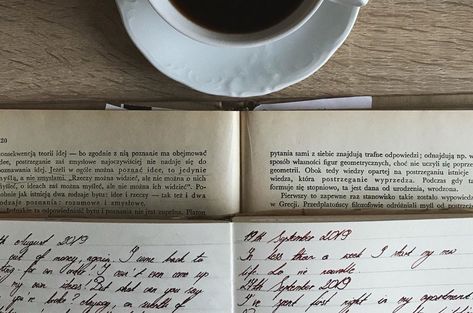 20
konsekwencją teorii idej — bo zgodnie z nią poznanie ma obejmować
idee, postrzeganie zaś zmysłowe najoczywiściej nie nadaje się do
poznawania idej. Jeżeli w ogóle można poznać idee, to jedynie
myślą, a nie zmysłami. „Rzeczy można widzieć, ale nie można o nich
myśleć, o ideach zaś można myśleć, ale nie można ich widzieć". Po-
znanie jest jakościowo dwojakie: idee i rzeczy — tak też i dwa
rodzaje poznania: rozumowe i zmysłowe.
Ta odpowiedniość bytu i poznania nie jest zupełna. Platon
pytania sami z siebie znajdują trafne odpowiedzi; odnajdują np. we
sposób własności figur geometrycznych, choć nie uczyli się poprzed
geometrii. Obok tedy wiedzy opartej na postrzeganiu istnieje
wiedza, która postrzeganie wyprzedza. Podczas gdy
formuje się stopniowo, ta jest dana od urodzenia, wrodzona.
Pierwszy to zapewne raz stanowisko takie zostało wypowiedz
w Grecji. Przedplatońscy filozofowie odróżniali myśl od postrze
August 2019
out of money, again. I came back to
for an order! I can't even come up
my own ideas! But what can you say
you're broke? Anyway, an
19th September 2019
In less than a week I start my new
life
27th September 2019
I've spent first night in my apartment